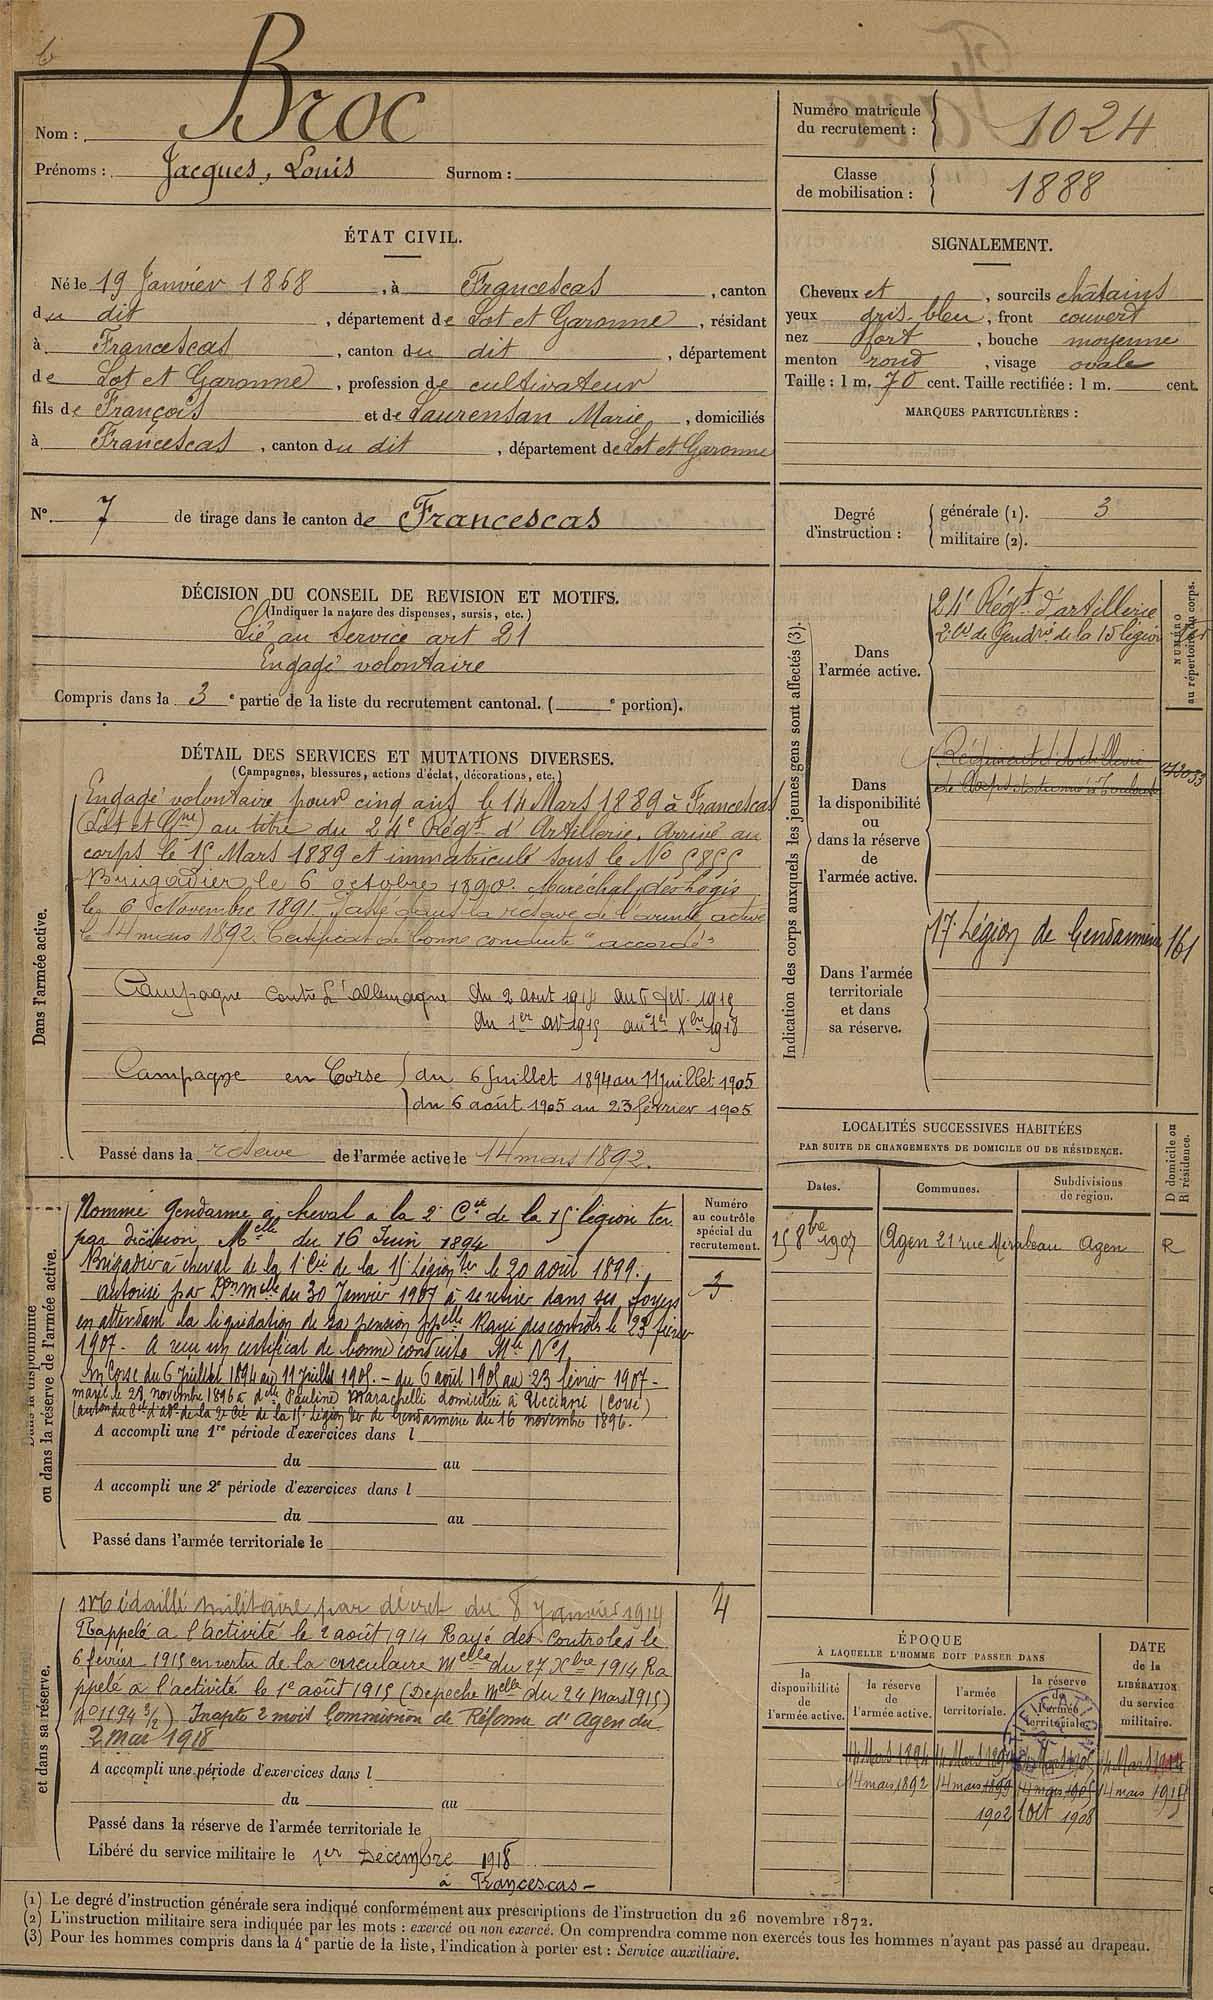 Broc
Nom :
Prénoms : Jacques, Louis Surnom :
Numéro matricule du recrutement : 1024
Classe de mobilisation : 1888
ÉTAT CIVIL.
Né le 19 Janvier 1868, à Francescas, canton
du dit, département de Lot et Garonne, résidant
à Francescas, canton du dit, département
de Lot et Garonne, profession de cultivateur
fils de François et de Laurensan Marie, domiciliés
à Francescas, canton du dit, département de Lot et Garonne
SIGNALEMENT.
Cheveux et, sourcils châtains
yeux gris-bleu, front couvert
nez fort, bouche moyenne
menton rond, visage ovale
Taille : 1 m. 70 cent. Taille rectifiée : 1 m. cent.
MARQUES PARTICULIÈRES :
N° 7 de tirage dans le canton de Francescas
Degré d'instruction : générale (1). 3
militaire (2).
DÉCISION DU CONSEIL DE REVISION ET MOTIFS.
(Indiquer la nature des dispenses, sursis, etc.)
Lié au service art 21
Engagé volontaire
Compris dans la 3e partie de la liste du recrutement cantonal. (e portion).
DÉTAIL DES SERVICES ET MUTATIONS DIVERSES.
(Campagnes, blessures, actions d'éclat, décorations, etc.)
Dans l'armée active.
Engagé volontaire pour cinq ans le 14 Mars 1889 à Francescas
(Lot et Gne) au titre du 24e Régt d'Artillerie. Arrivé au
corps le 15 Mars 1889 et immatriculé sous le No 5855
Brigadier le 6 octobre 1890. Maréchal des logis
le 6 Novembre 1891. Passé dans la réserve de l'armée active
le 14 mars 1892. Certificat de bonne conduite "accordé"
Campagne contre l'allemagne du 2 aout 1914 au 6 fév. 1915
du 1er av 1915 au 1er Xbre 1918
Campagne en Corse ) du 6 Juillet 1894 au 11 juillet 1905
) du 6 août 1905 au 23 février 1905
Passé dans la réserve de l'armée active le 14 mars 1892.
Indication des corps auxquels les jeunes gens sont affectés (3).
NUMÉRO au répertoire du corps.
Dans l'armée active.
24e Régt d'artillerie
2e Cie de Gendrie de la 15 légion ter
Dans la disponibilité ou dans la réserve de l'armée active.
Régiment d'Artillerie
Dans l'armée territoriale et dans sa réserve.
17e Légion de Gendarmerie 161
LOCALITÉS SUCCESSIVES HABITÉES
PAR SUITE DE CHANGEMENTS DE DOMICILE OU DE RÉSIDENCE.
D domicile ou R résidence.
Dates. Communes. Subdivisions de région.
15 8bre 1907 Agen 21 rue Mirabeau Agen R
Dans la disponibilité ou dans la réserve de l'armée active.
Numéro au contrôle spécial du recrutement.
Nommé Gendarme à cheval a la 2e Cie de la 15e légion ter
par décision Melle du 16 Juin 1894
Brigadier à cheval de la 1e Cie de la 15e Légion ter le 20 août 1899.
autorisé par Don Melle du 30 Janvier 1907 à se retirer dans ses foyers
en attendant la liquidation de sa pension ppelle Rayé des contrôles le 23 février
1907. A reçu un certificat de bonne conduite Mle No 1
En Corse du 6 Juillet 1894 au 11 Juillet 1905. - du 6 août 1905 au 23 février 1907 -
marié le 28 novembre 1896 à delle Pauline Marachelli domiciliée à Ucciani (Corse)
(auton du Cel d'adon de la 2e Cie de la 15e Légion ter de Gendarmerie du 16 novembre 1896.
A accompli une 1re période d'exercices dans l
du au
A accompli une 2e période d'exercices dans l
du au
Passé dans l'armée territoriale le
et dans sa réserve.
Médaillé militaire par décret du 8 Janvier 1914
4
Rappelé a l'activité le 2 août 1914 Rayé des Controles le
6 février 1915 en vertu de la circulaire Melle du 27 Xbre 1914 Ra
ppelé à l'activité le 1e août 1915 (Depeche Melle du 24 Mars 1915)
No 1194 3/2) Inapte 2 mois Commission de Réforme d'Agen du
2 Mai 1918
A accompli une période d'exercices dans l
du au
Passé dans la réserve de l'armée territoriale le
Libéré du service militaire le 1er Décembre 1918
à Francescas -
ÉPOQUE
À LAQUELLE L'HOMME DOIT PASSER DANS
la disponibilité de l'armée active. la réserve de l'armée active. l'armée territoriale. la réserve de l'armée territoriale.
DATE de la LIBÉRATION du service militaire.
14 Mars 1894
14 mars 1892 14 mars 1899 14 mars 1905 14 mars 1915
1902 Oct 1908
(1) Le degré d'instruction générale sera indiqué conformément aux prescriptions de l'instruction du 26 novembre 1872.
(2) L'instruction militaire sera indiquée par les mots : exercé ou non exercé. On comprendra comme non exercés tous les hommes n'ayant pas passé au drapeau.
(3) Pour les hommes compris dans la 4e partie de la liste, l'indication à porter est : Service auxiliaire.